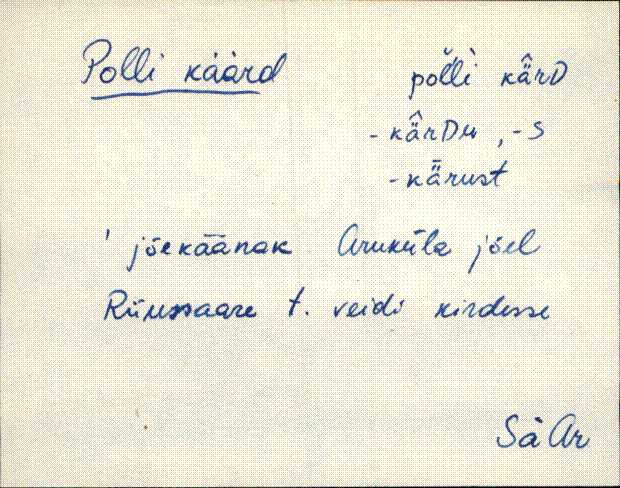 Polli käärd
pŏl̀li kä̂rD
- kä̂rDu, -s
- kä̆rust
' jõekäänak Aruküla jõel
Riiussaare t. veidi kirdesse
Sä Ar